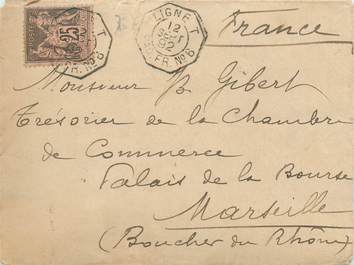 LIGNE T
12
92
PAQ. FR. Nº 8
25
T
FR. Nº 8
France
Monsieur Gibert
Trésorier de la Chambre
de Commerce
Palais de la Bourse
Marseille
(Boucher du Rhône)